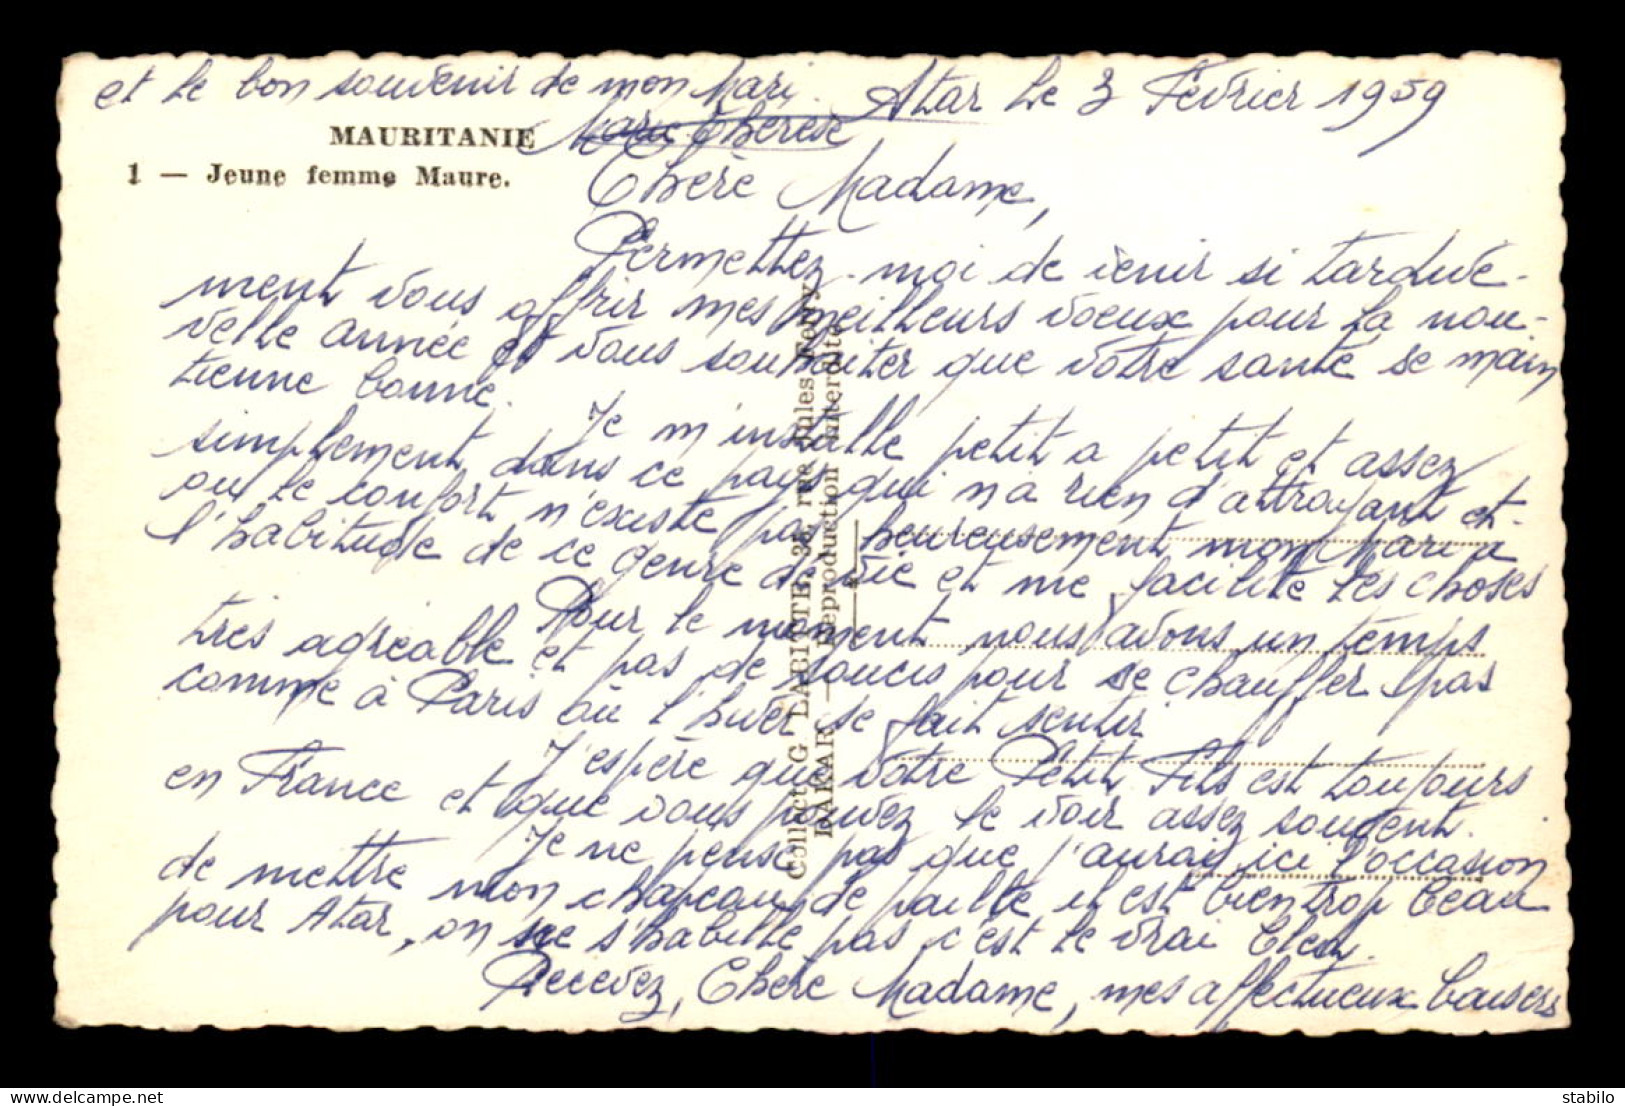 et le bon souvenir de mon Mari.
Marie Thérèse
Atar le 3 Février 1959
MAURITANIE
1 — Jeune femme Maure.
Chère Madame,
Permettez-moi de venir si tardive-
ment vous offrir mes meilleurs voeux pour la nou-
velle année et vous souhaiter que votre santé se main
tienne bonne.
Je m'installe petit a petit et assez
simplement dans ce pays qui n'a rien d'attrayant et
ou le confort n'existe pas heureusement mon Mari a
l'habitude de ce genre de vie et me facilite les choses
Pour le moment nous avons un temps
très agréable et pas de soucis pour se chauffer pas
comme à Paris où l'hiver se fait sentir
J'espère que votre Petit Fils est toujours
en France et que vous pouvez le voir assez souvent.
Je ne pense pas que j'aurai ici l'occasion
de mettre mon chapeau de paille il est bien trop beau
pour Atar, on ne s'habille pas c'est le vrai bled.
Recevez, Chère Madame, mes affectueux baisers
Collect. G. LABITTE. 35, rue Jules Ferry
DAKAR — Reproduction interdite
delcampe.net
stabilo